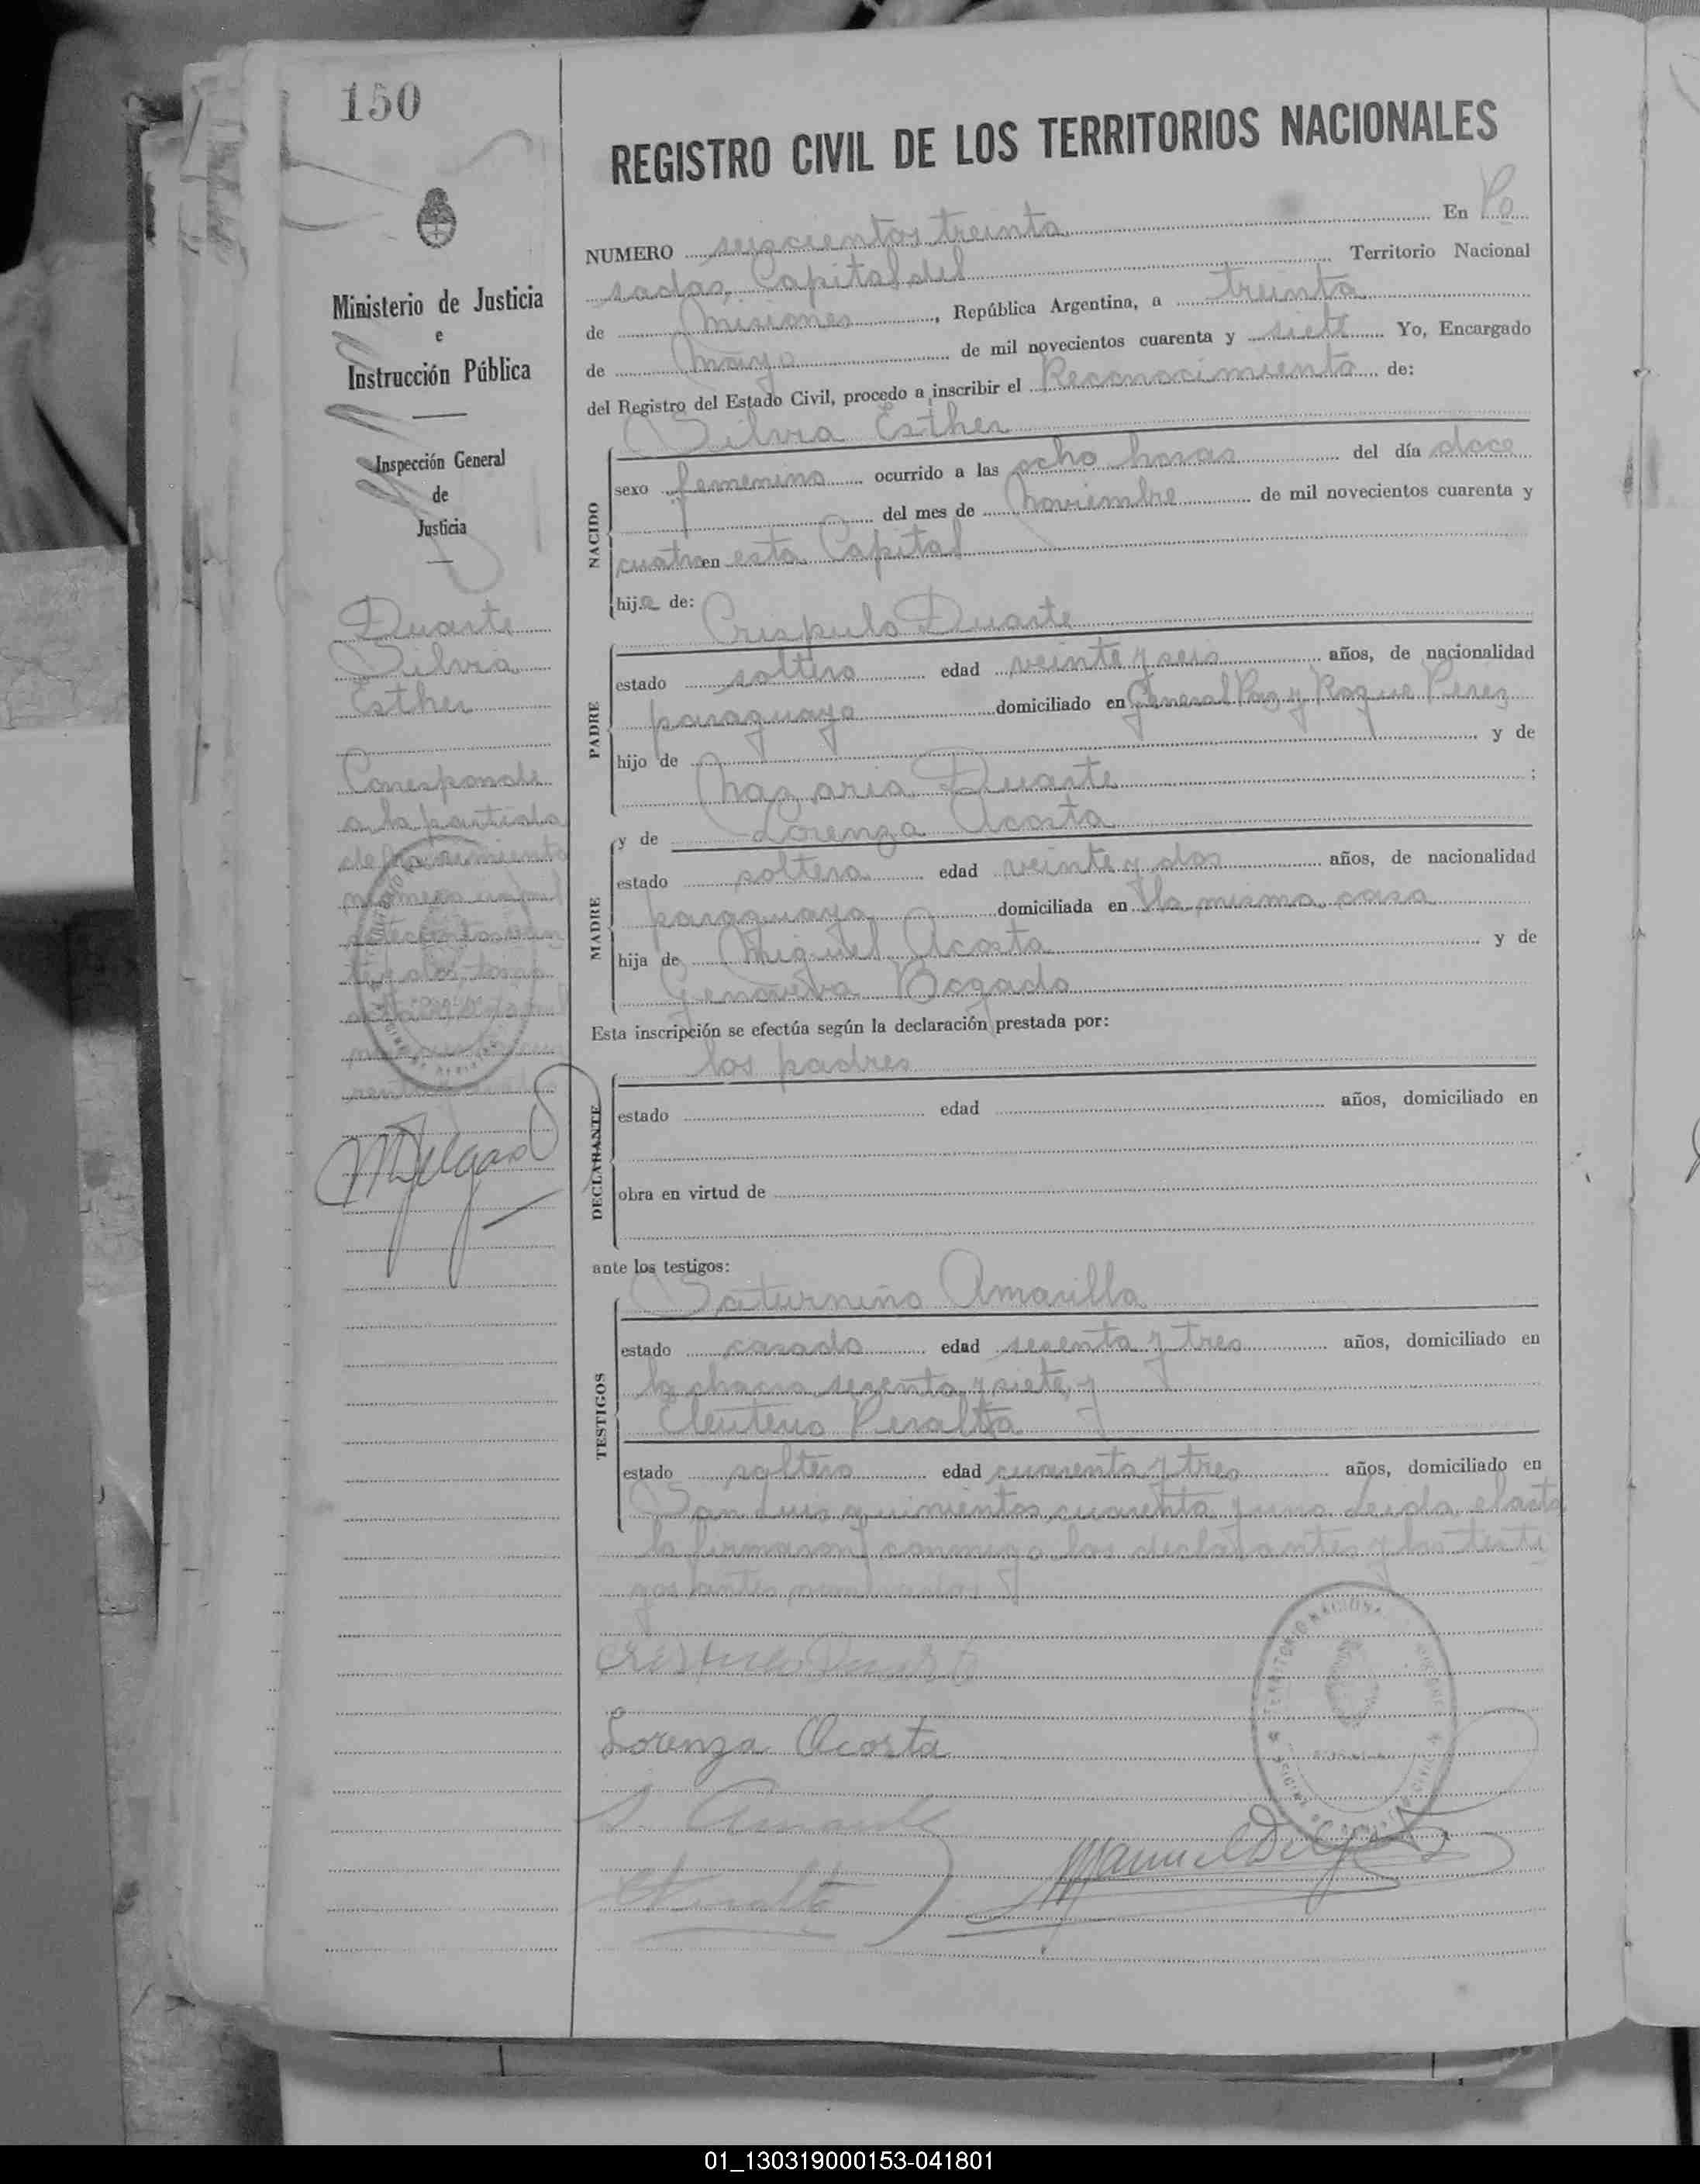 150
REGISTRO CIVIL DE LOS TERRITORIOS NACIONALES
NUMERO seiscientos treinta En Po
sadas, Capital del Territorio Nacional
de Misiones, República Argentina, a treinta
de Mayo de mil novecientos cuarenta y siete Yo, Encargado
del Registro del Estado Civil, procedo a inscribir el Reconocimiento de:
Silvia Esther
NACIDO
sexo femenino ocurrido a las ocho horas del día doce
del mes de Noviembre de mil novecientos cuarenta y
cuatro en esta Capital
hija de:
Crispulo Duarte
PADRE
estado soltero edad veinte y seis años, de nacionalidad
paraguayo domiciliado en General Paz y Roque Perez
hijo de y de
Nazaria Duarte ;
y de Lorenza Acosta
MADRE
estado soltera edad veinte y dos años, de nacionalidad
paraguaya domiciliada en la misma casa
hija de Miguel Acosta y de
Genoveva Bogado
Esta inscripción se efectúa según la declaración prestada por:
los padres
DECLARANTE
estado edad años, domiciliado en
obra en virtud de
ante los testigos:
Saturnino Amarilla
TESTIGOS
estado casado edad sesenta y tres años, domiciliado en
la chacra sesenta y siete, y
Eleuterio Peralta
estado soltero edad cuarenta y tres años, domiciliado en
San Luis quinientos cuarenta y uno Leida el acta
la firmaron conmigo los declarantes y los testi
gos antes nombrados
Crispulo Duarte
Lorenza Acosta
S. Amarilla
EPeralta
Manuel Delgado
Ministerio de Justicia
e
Instrucción Pública
Inspección General
de
Justicia
Duarte
Silvia
Esther
Corresponde
a la partida
de Nacimiento
número un mil
setecientos vein
te y dos, tomo
MDelgado
01_130319000153-041801